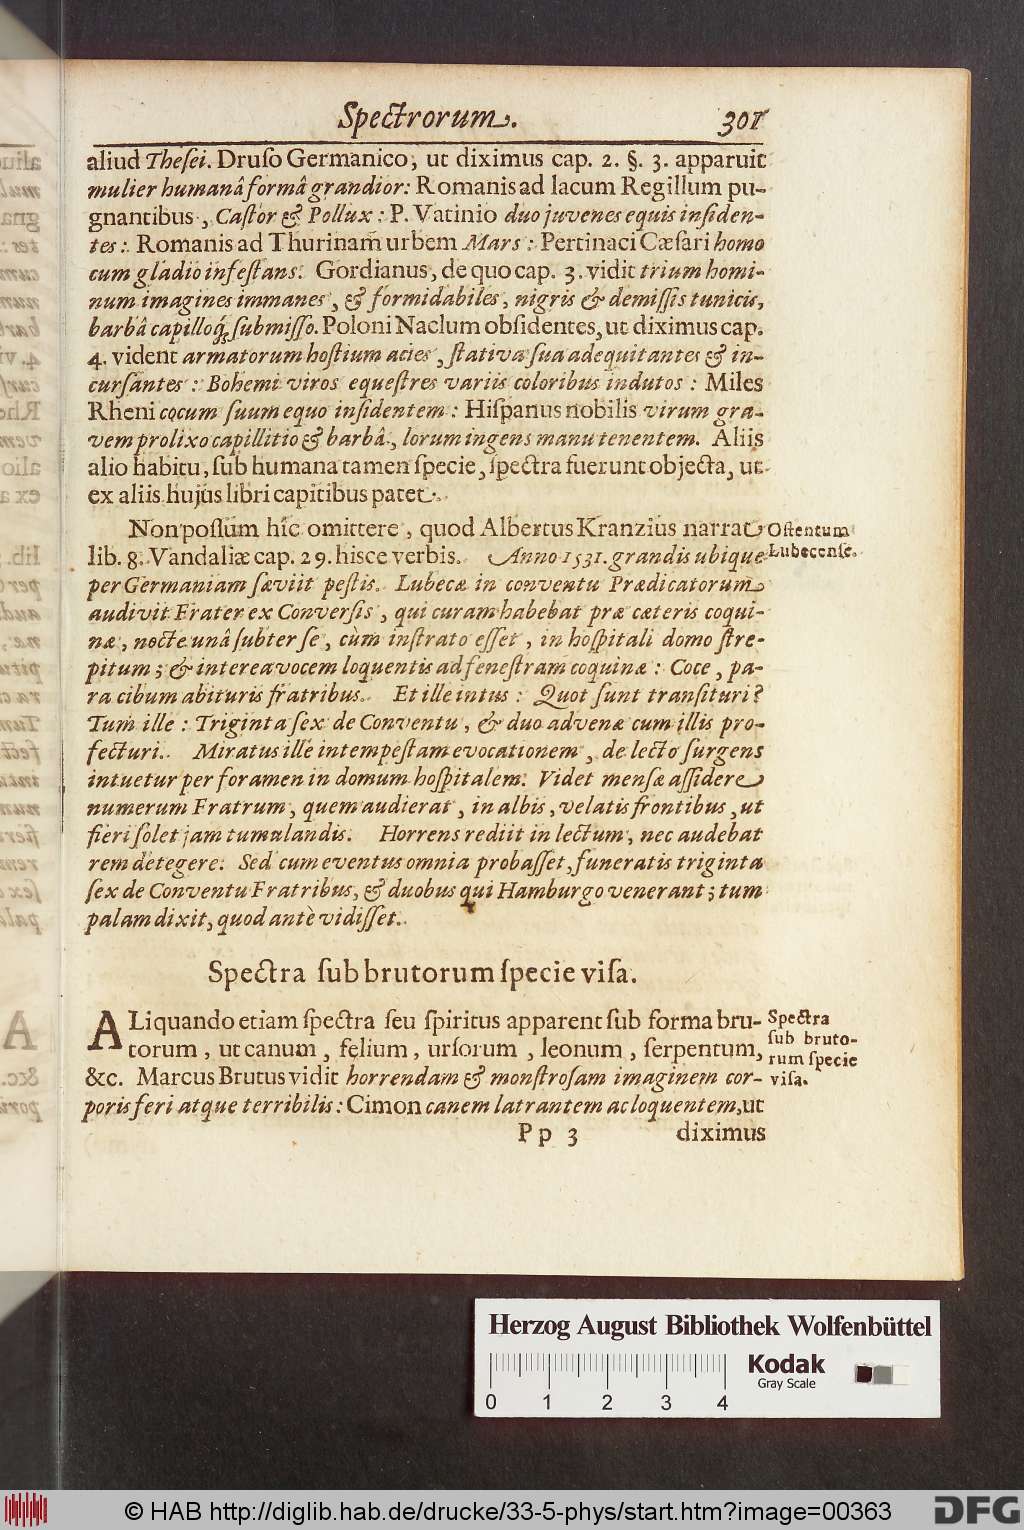 Spectrorum. 301
aliud Thesei. Druso Germanico, ut diximus cap. 2. §. 3. apparuit
mulier humanâ formâ grandior: Romanis ad lacum Regillum pu-
gnantibus, Castor & Pollux: P. Vatinio duo juvenes equis insiden-
tes: Romanis ad Thurinam urbem Mars: Pertinaci Cæsari homo
cum gladio infestans. Gordianus, de quo cap. 3. vidit trium homi-
num imagines immanes, & formidabiles, nigris & demissis tunicis,
barbâ capilloq́; submisso. Poloni Naclum obsidentes, ut diximus cap.
4. vident armatorum hostium acies, stativa sua adequitantes & in-
cursantes: Bohemi viros equestres variis coloribus indutos: Miles
Rheni cocum suum equo insidentem: Hispanus nobilis virum gra-
vem prolixo capillitio & barbâ, lorum ingens manu tenentem. Aliis
alio habitu, sub humana tamen specie, spectra fuerunt objecta, ut
ex aliis hujus libri capitibus patet.
Non possum hîc omittere, quod Albertus Kranzius narrat
Ostentum
Lubecense.
lib. 8. Vandaliæ cap. 29. hisce verbis. Anno 1531. grandis ubique
per Germaniam sæviit pestis. Lubecæ in conventu Prædicatorum
audivit Frater ex Conversis, qui curam habebat præ cæteris coqui-
næ, nocte unâ subter se, cùm in strato esset, in hospitali domo stre-
pitum; & interea vocem loquentis ad fenestram coquinæ: Coce, pa-
ra cibum abituris fratribus. Et ille intus: Quot sunt transituri?
Tum ille: Triginta sex de Conventu, & duo advenæ cum illis pro-
fecturi. Miratus ille intempestam evocationem, de lecto surgens
intuetur per foramen in domum hospitalem. Videt mensæ assidere
numerum Fratrum, quem audierat, in albis, velatis frontibus, ut
fieri solet jam tumulandis. Horrens rediit in lectum, nec audebat
rem detegere. Sed cum eventus omnia probasset, funeratis triginta
sex de Conventu Fratribus, & duobus qui Hamburgo venerant; tum
palam dixit, quod antè vidisset.
Spectra sub brutorum specie visa.
ALiquando etiam spectra seu spiritus apparent sub forma bru-
torum, ut canum, felium, ursorum, leonum, serpentum,
&c. Marcus Brutus vidit horrendam & monstrosam imaginem cor-
poris feri atque terribilis: Cimon canem latrantem ac loquentem, ut
Spectra
sub bruto-
rum specie
visa.
Pp 3 diximus
Herzog August Bibliothek Wolfenbüttel
Kodak
Gray Scale
0 1 2 3 4
© HAB http://diglib.hab.de/drucke/33-5-phys/start.htm?image=00363
DFG